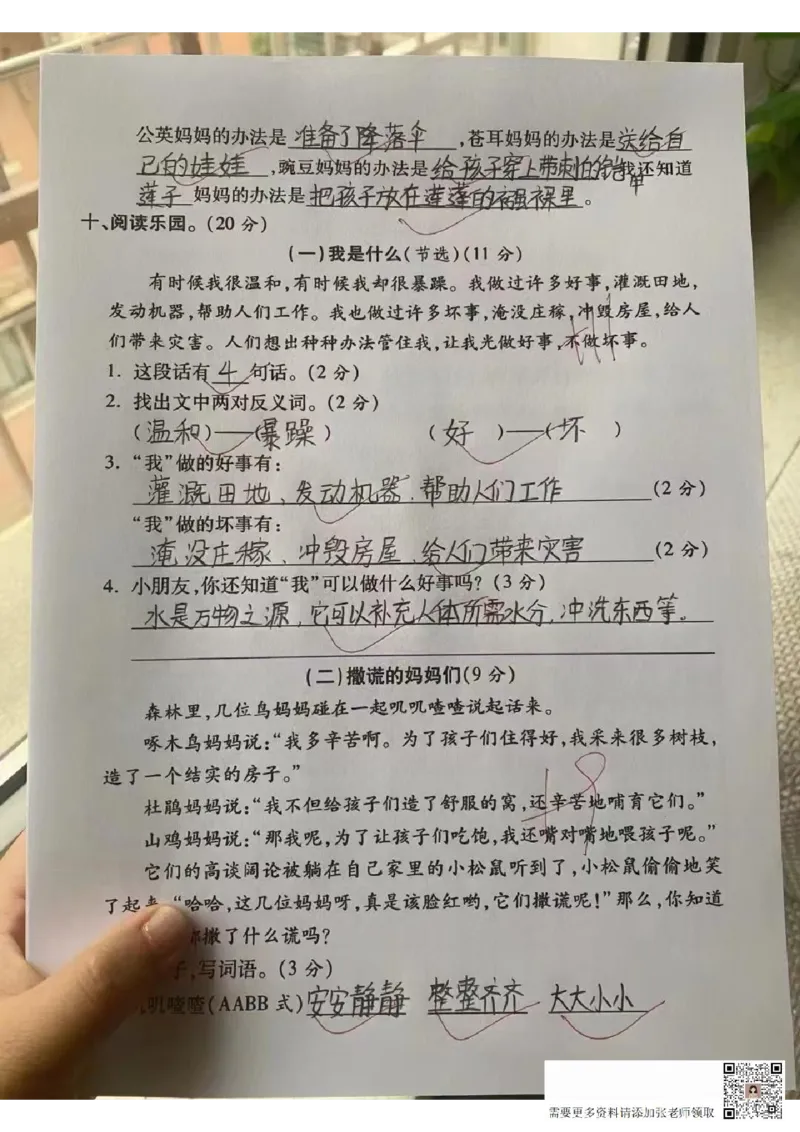 公英妈妈的办法是 准备了降落伞 ,苍耳妈妈的办法是送给自
己的娃娃 ,豌豆妈妈的办法是 给孩子穿上带刺的铠甲 我还知道
莲子 妈妈的办法是把孩子放在莲蓬的襁褓里。
十、阅读乐园。(20 分)
(一)我是什么(节选)(11 分)
有时候我很温和,有时候我却很暴躁。我做过许多好事,灌溉田地,
发动机器,帮助人们工作。我也做过许多坏事,淹没庄稼,冲毁房屋,给人
们带来灾害。人们想出种种办法管住我,让我光做好事,不做坏事。
1. 这段话有 4 句话。(2 分)
2. 找出文中两对反义词。(2 分)
(温和)——(暴躁) (好)——(坏)
3. “我”做的好事有:
灌溉田地、发动机器、帮助人们工作 (2 分)
“我”做的坏事有:
淹没庄稼、冲毁房屋、给人们带来灾害 (2 分)
4. 小朋友,你还知道“我”可以做什么好事吗? (3 分)
水是万物之源,它可以补充人体所需水分,冲洗东西等。
(二)撒谎的妈妈们(9 分)
森林里,几位鸟妈妈碰在一起叽叽喳喳说起话来。
啄木鸟妈妈说:“我多辛苦啊。为了孩子们住得好,我采来很多树枝,
造了一个结实的房子。”
杜鹃妈妈说:“我不但给孩子们造了舒服的窝,还辛苦地哺育它们。”
山鸡妈妈说:“那我呢,为了让孩子们吃饱,我还嘴对嘴地喂孩子呢。”
它们的高谈阔论被躺在自己家里的小松鼠听到了,小松鼠偷偷地笑
了起来,“哈哈,这几位妈妈呀,真是该脸红哟,它们撒谎呢!”那么,你知道
撒了什么谎吗?
子,写词语。(3 分)
叽喳喳(AABB 式)安安静静 整整齐齐 大大小小
需要更多资料请添加张老师领取